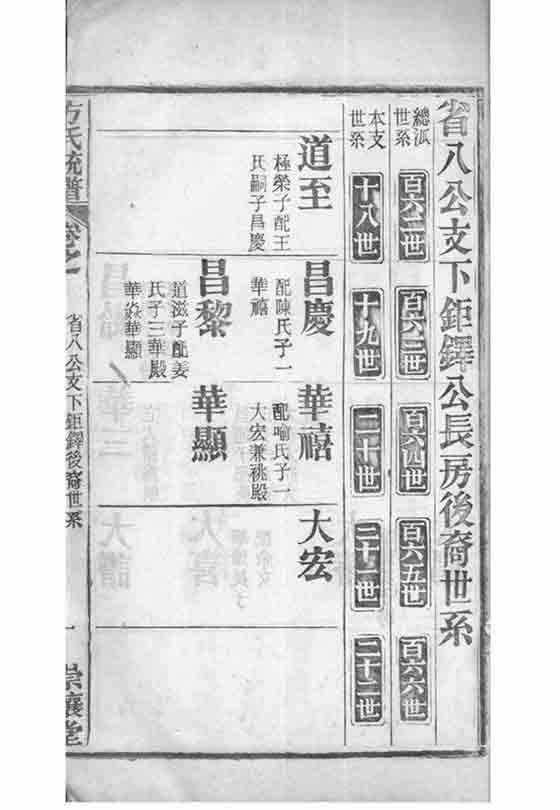 省八公支下鉅鐸公長房後裔世系
總派世系
百六二世
百六三世
百六四世
百六五世
百六六世
本支世系
十八世
十九世
二十世
二十一世
二十二世
道至
極榮子配王
氏嗣子昌慶
昌慶
配陳氏子一
華禧
昌黎
道滋子配姜
氏子三華殿
華焱華顯
華禧
配喻氏子一
大宏兼祧殿
華顯
大宏
方氏統譜
卷之
省八公支下鉅鐸後裔世系
一
崇讓堂